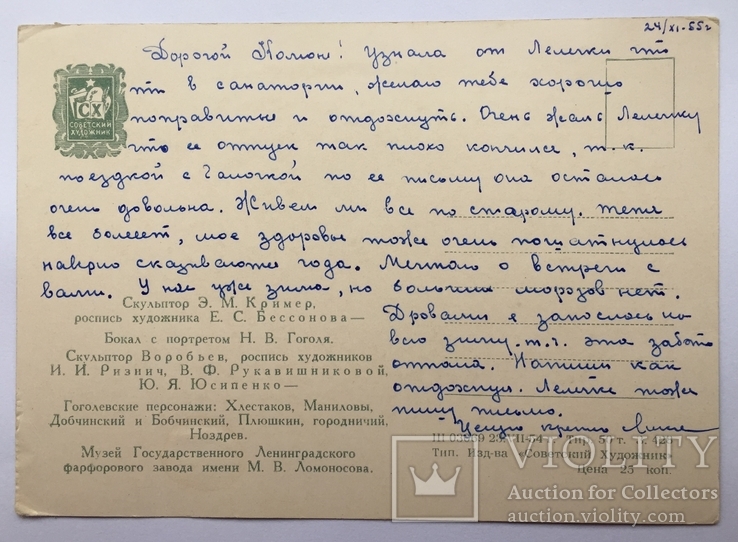 24/XI-55г
Дорогой Колюн! Узнала от Лелечки что
ты в санатории, желаю тебе хорошо
поправиться и отдохнуть. Очень жаль Лелечку
что ее отпуск так плохо кончился, т.к.
поездкой с Галочкой по ее письму она осталась
очень довольна. Живем мы все по старому. Тетя
все болеет, мое здоровье тоже очень пошатнулось
наверно сказываются года. Мечтаю о встрече с
вами. У нас уже зима, но больших морозов нет.
Дровами я запаслась на
всю зиму т.ч. эта забота
отпала. Напиши как
отдохнул. Лелечке тоже
пишу письмо.
Целую крепко
СХ
СОВЕТСКИЙ
ХУДОЖНИК
Скульптор Э. М. Кример,
роспись художника Е. С. Бессонова—
Бокал с портретом Н. В. Гоголя.
Скульптор Воробьев, роспись художников
И. И. Ризнич, В. Ф. Рукавишниковой,
Ю. Я. Юсипенко—
Гоголевские персонажи: Хлестаков, Маниловы,
Добчинский и Бобчинский, Плюшкин, городничий,
Ноздрев.
Музей Государственного Ленинградского
фарфорового завода имени М. В. Ломоносова.
Ш 03869 Тир. 50 т. з. 426
Тип. Изд-ва «Советский Художник»
Цена 25 коп.
VIOLITY
Auction for Collectors
auction.violity.com